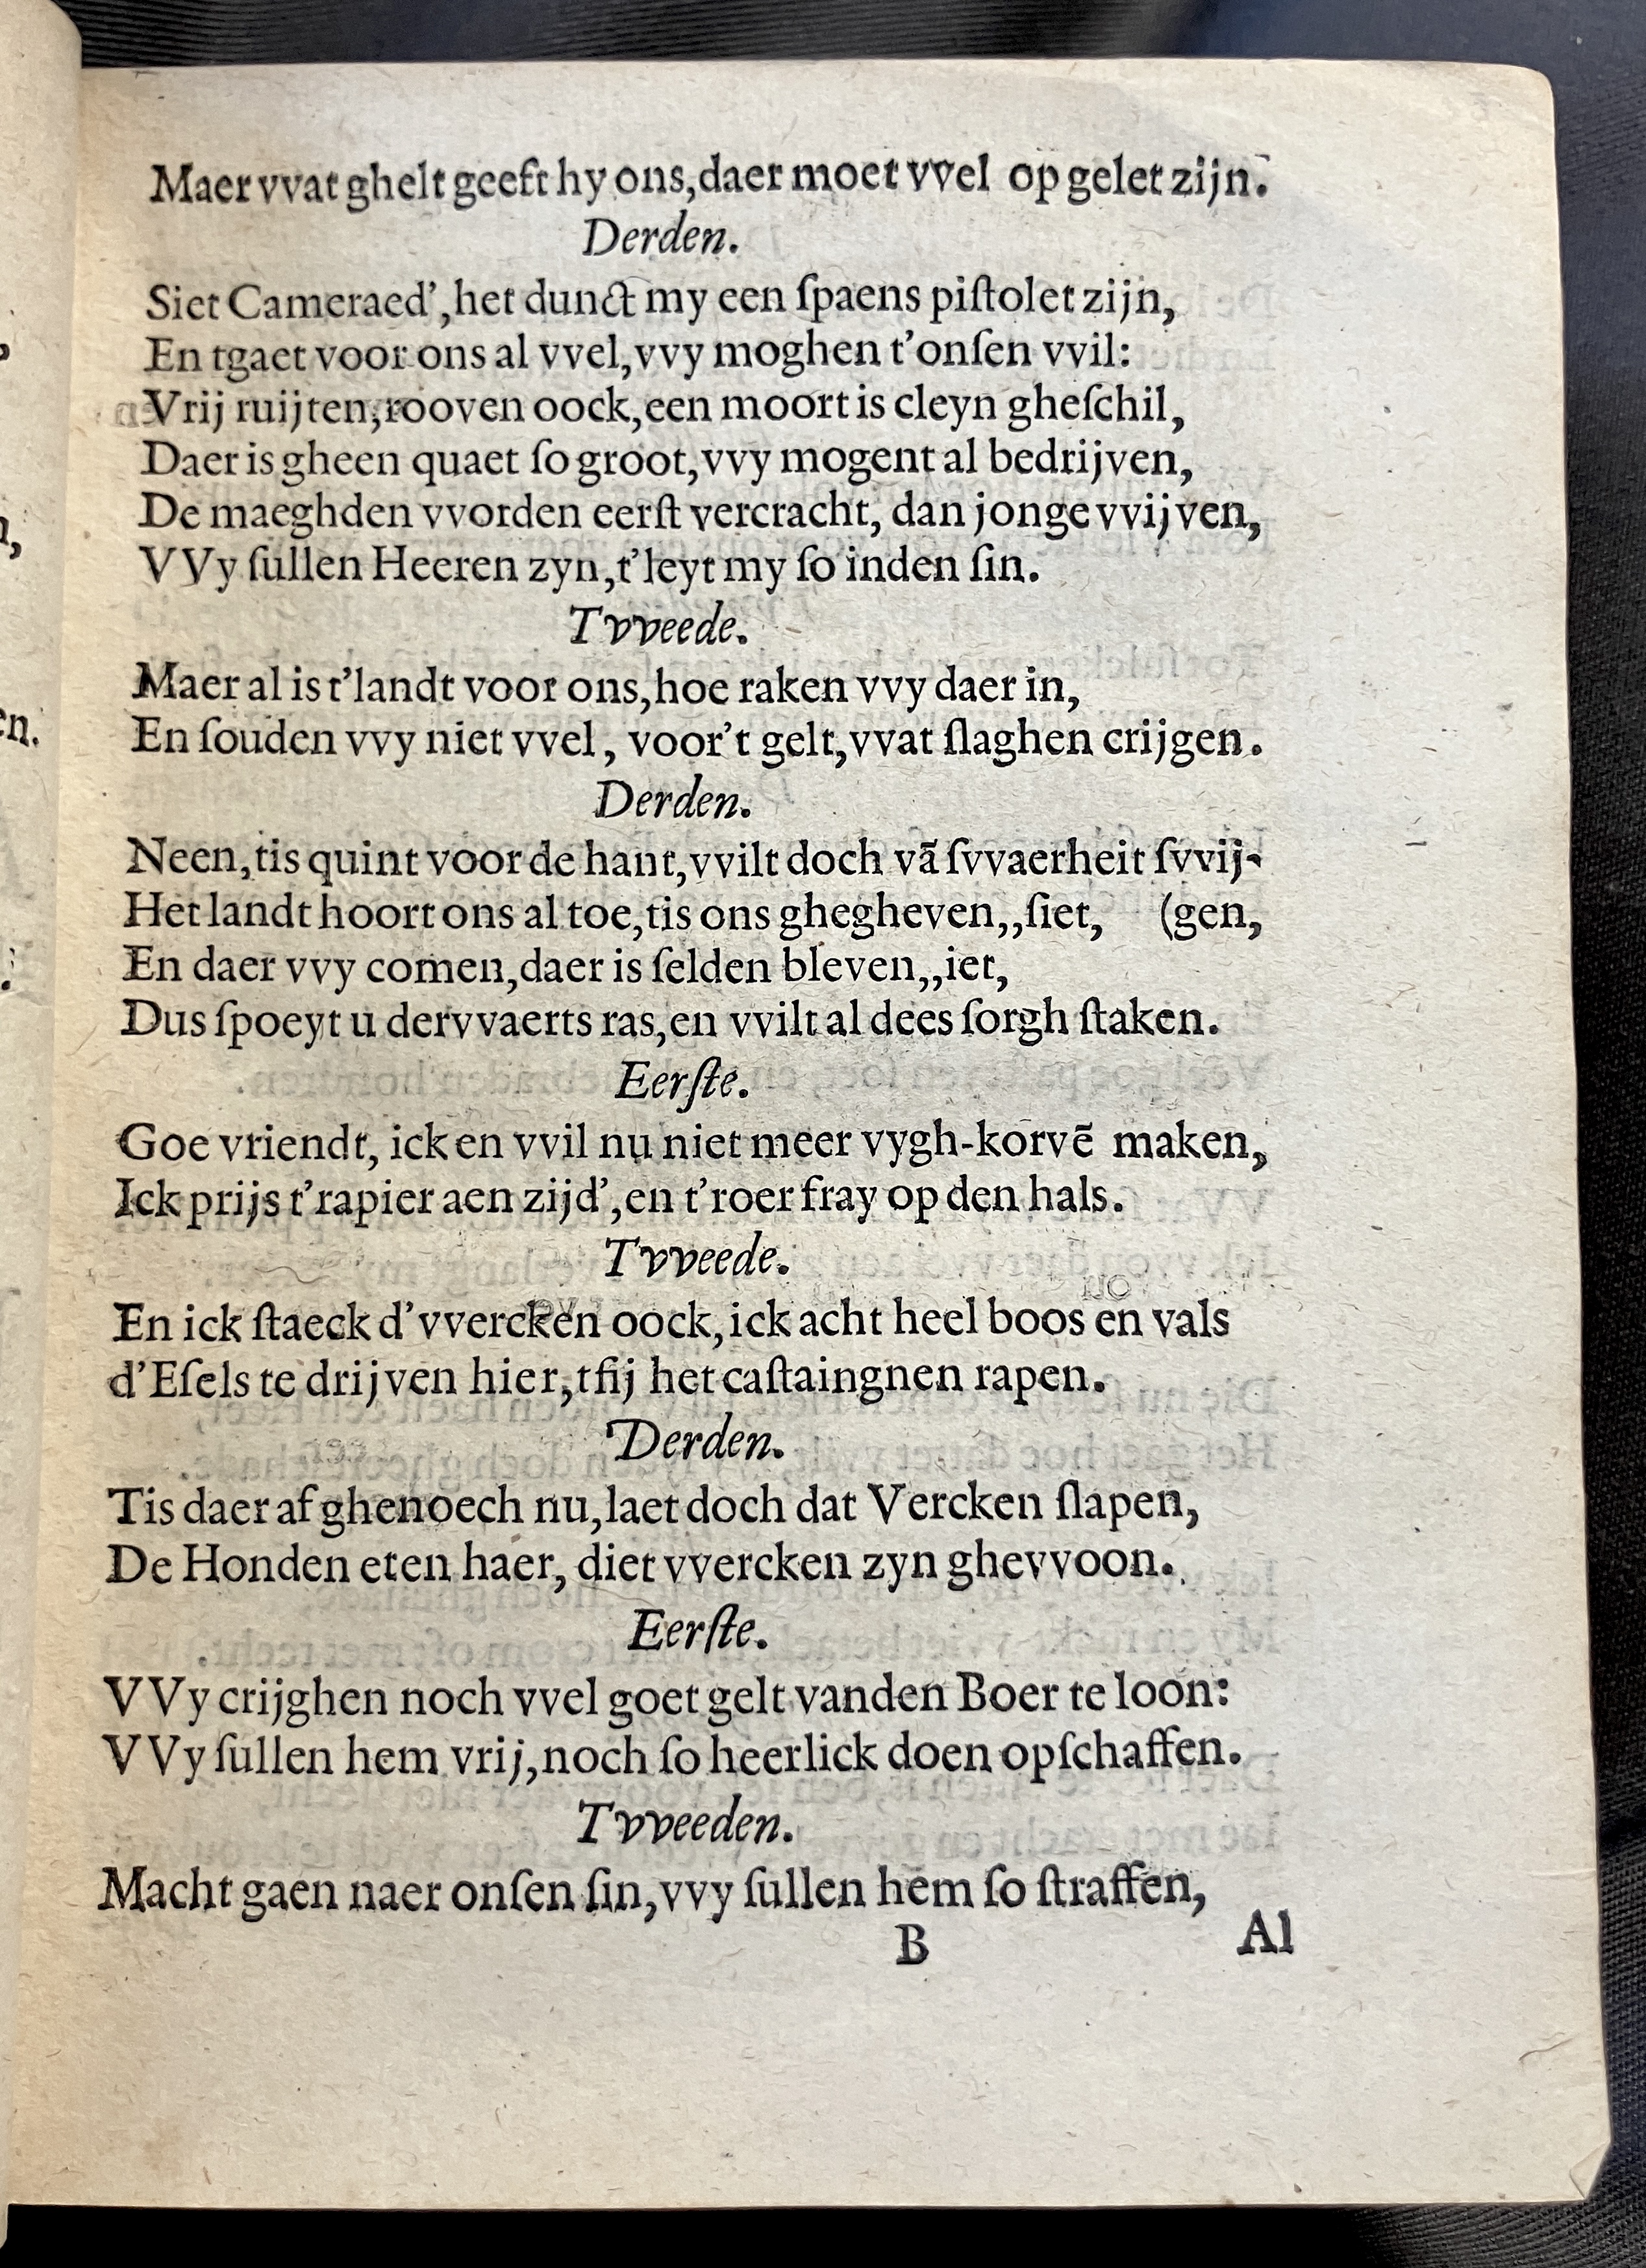 Maer vvat ghelt geeft hy ons,daer moet vvel op gelet zijn.
Derden.
Siet Cameraed',het dunct my een ſpaens piſtolet zijn,
En tgaet voor ons al vvel,vvy moghen t'onſen vvil:
Vrij ruijten,rooven oock,een moort is cleyn gheſchil,
Daer is gheen quaet ſo groot,vvy mogent al bedrijven,
De maeghden vvorden eerſt vercracht, dan jonge vvijven,
VVy ſullen Heeren zyn,t'leyt my ſo inden ſin.
Tvveede.
Maer al is t'landt voor ons,hoe raken vvy daer in,
En ſouden vvy niet vvel, voor't gelt,vvat ſlaghen crijgen.
Derden.
Neen,tis quint voor de hant,vvilt doch vã ſvvaerheit ſvvij-
Het landt hoort ons al toe,tis ons ghegheven,,ſiet, (gen,
En daer vvy comen,daer is ſelden bleven,,iet,
Dus ſpoeyt u dervvaerts ras,en vvilt al dees ſorgh ſtaken.
Eerſte.
Goe vriendt, ick en vvil nu niet meer vygh-korvẽ maken,
Ick prijs t'rapier aen zijd',en t'roer fray op den hals.
Tvveede.
En ick ſtaeck d'vvercken oock,ick acht heel boos en vals
d'Eſels te drijven hier,tſij het caſtaingnen rapen.
Derden.
Tis daer af ghenoech nu,laet doch dat Vercken ſlapen,
De Honden eten haer, diet vvercken zyn ghevvoon.
Eerſte.
VVy crijghen noch vvel goet gelt vanden Boer te loon:
VVy ſullen hem vrij,noch ſo heerlick doen opſchaffen.
Tvveeden.
Macht gaen naer onſen ſin,vvy ſullen hem ſo ſtraffen,
B Al